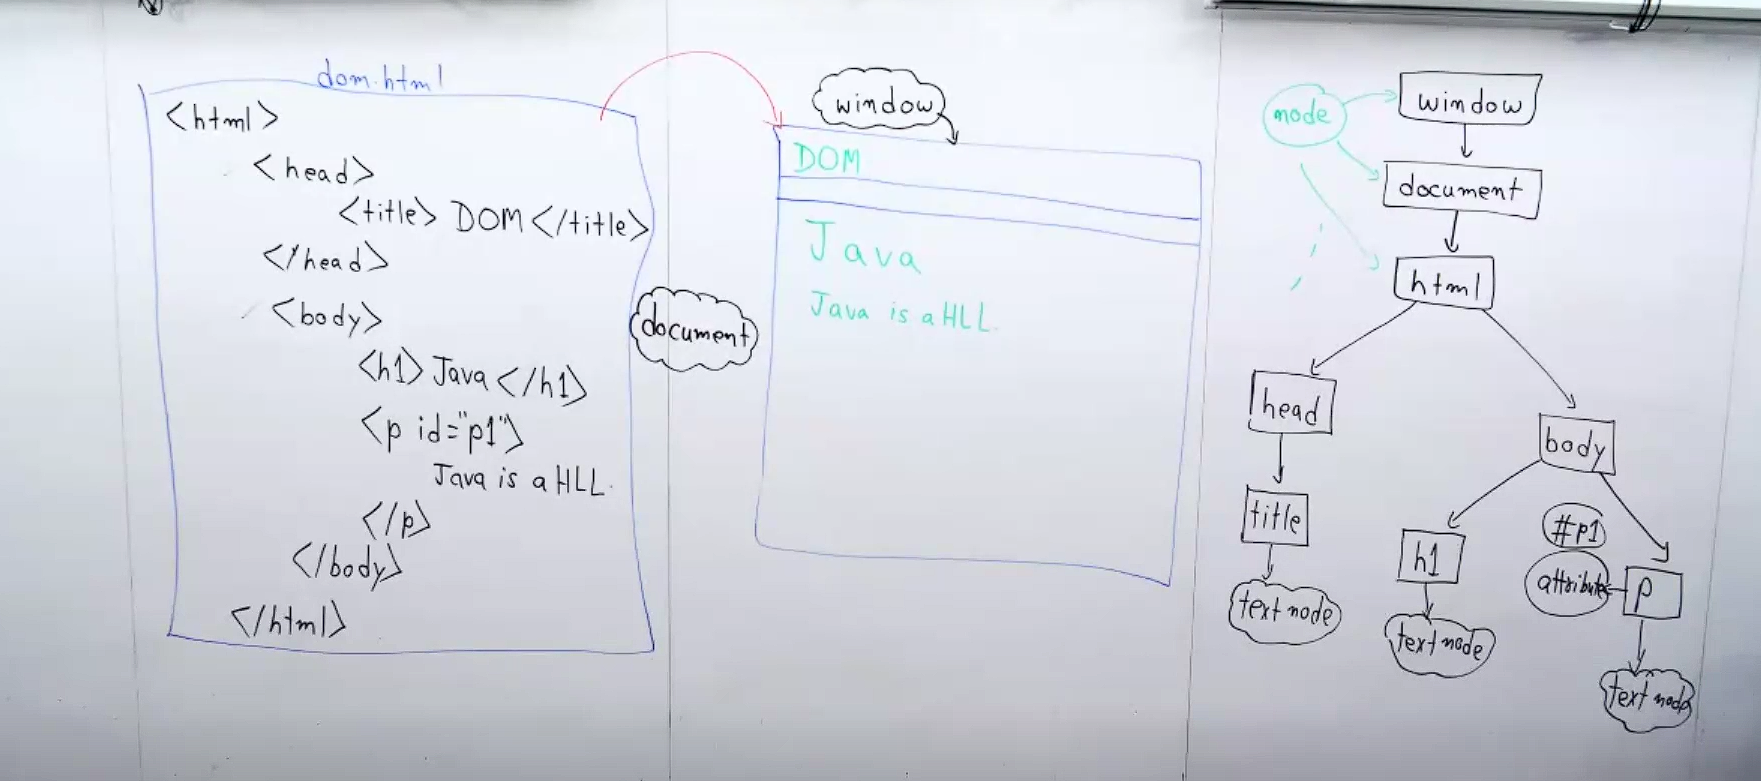 dom.html
<html>
<head>
<title> DOM </title>
</head>
<body>
<h1> Java </h1>
<p id="p1">
Java is a HLL.
</p>
</body>
</html>
document
window
DOM
Java
Java is a HLL.
node
window
document
html
head
body
title
h1
#p1
attribute
p
text node
text node
text node